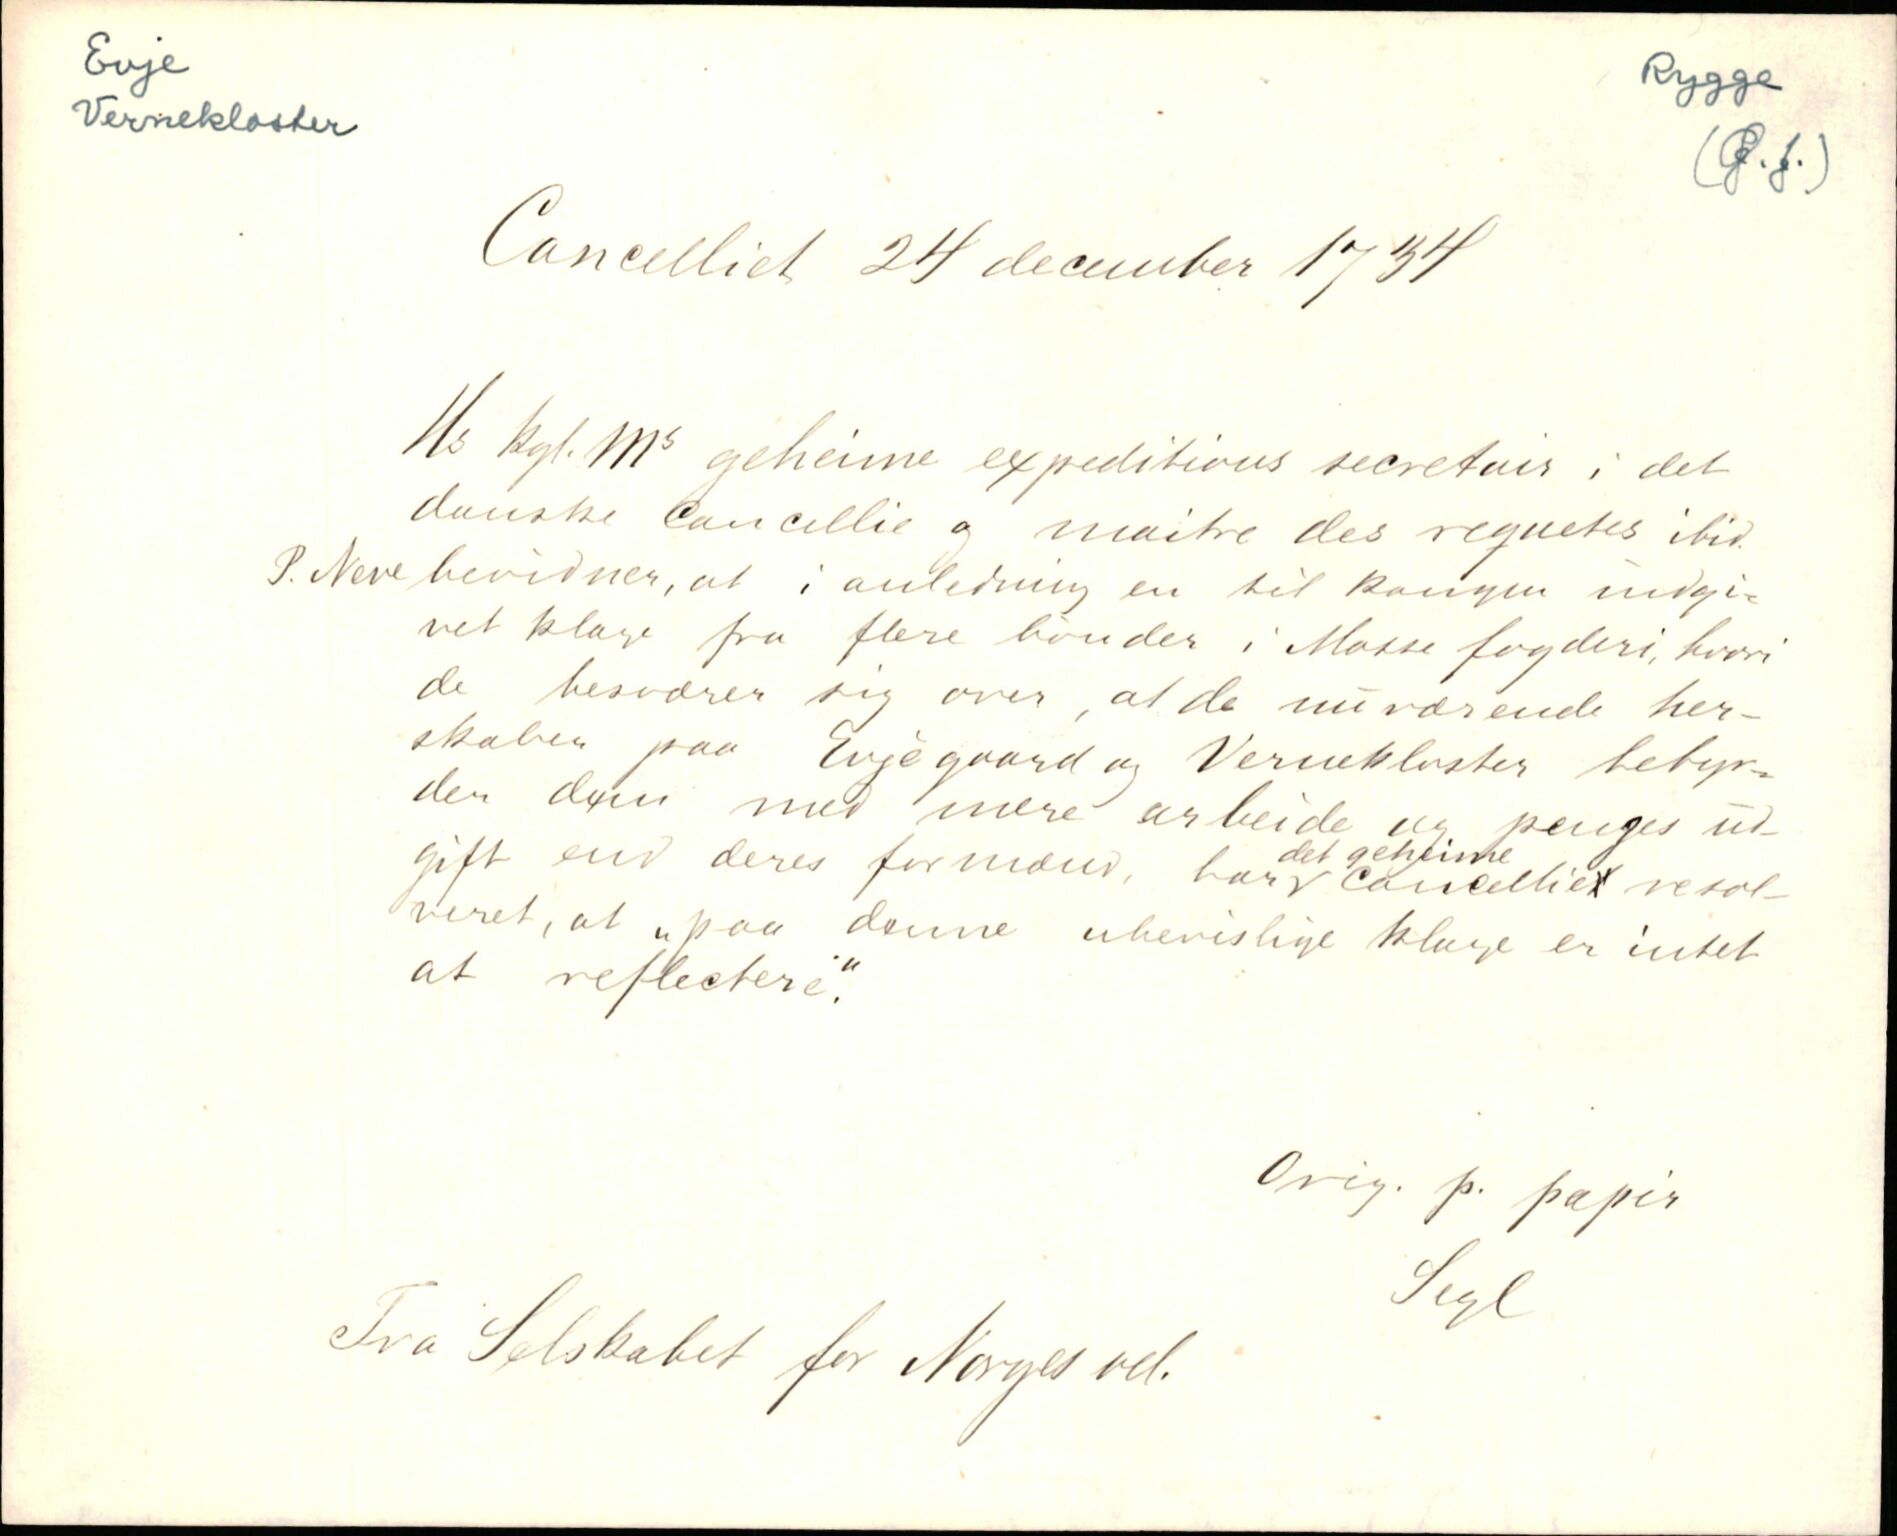 Evje
Vernekloster
Rygge
(G. f.)
Cancelliet 24 december 1734
Hs kgl. Ms geheime expeditions secretair i det
danske Cancellie og maitre des requetes ibid.
P. Neve bevidner, at i anledning en til kongen indgi-
vet klage fra flere bönder i Mosse fogderi, hvori
de besværer sig over, at de nuværende her-
skaber paa Evjegaard og Vernekloster bebyr-
der dem med mere arbeide og penges ud-
gift end deres formænd, har det geheime Cancellie resol-
veret, at „paa denne ubevislige klage er intet
at reflectere“.
Orig. p. papir
Segl
Fra Selskabet for Norges vel.